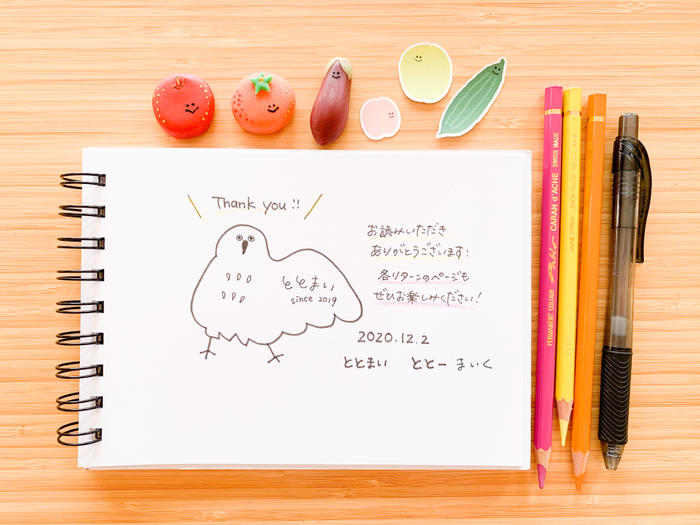 Thank you !!
お読みいただき
ありがとうございます!
各リターンのページも
ぜひお楽しみください!
ととまい
since 2019
2020.12.2
ととまい ととー まいく
CARAN d'ACHE
SWISS MADE
PERMANENT COLOUR